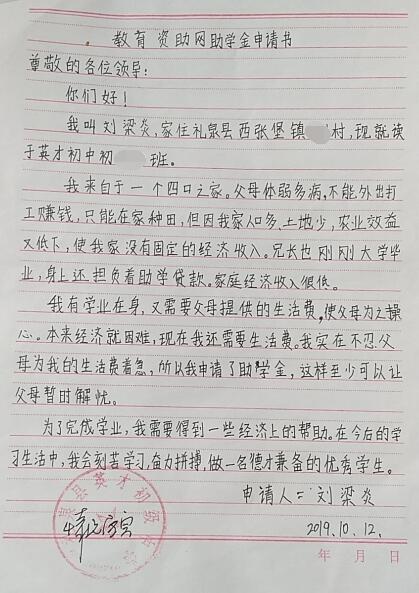 教育资助网助学金申请书
尊敬的各位领导:
你们好!
我叫刘梁炎,家住礼泉县西张堡镇 村,现就读
于英才初中初 班。
我来自于一个四口之家。父母体弱多病,不能外出打
工赚钱,只能在家种田,但因我家人口多,土地少,农业效益
又低下,使我家没有固定的经济收入。兄长也刚刚大学毕
业,身上还担负着助学贷款。家庭经济收入很低。
我有学业在身,又需要父母提供的生活费,使父母为之操
心。本来经济就困难,现在我还需要生活费。我实在不忍父
母为我的生活费着急,所以我申请了助学金,这样至少可以让
父母暂时解忧。
为了完成学业,我需要得到一些经济上的帮助。在今后的学
习生活中,我会刻苦学习,奋力拼搏,做一名德才兼备的优秀学生。
申请人:刘梁炎
2019.10.12.
情况属实
年 月 日